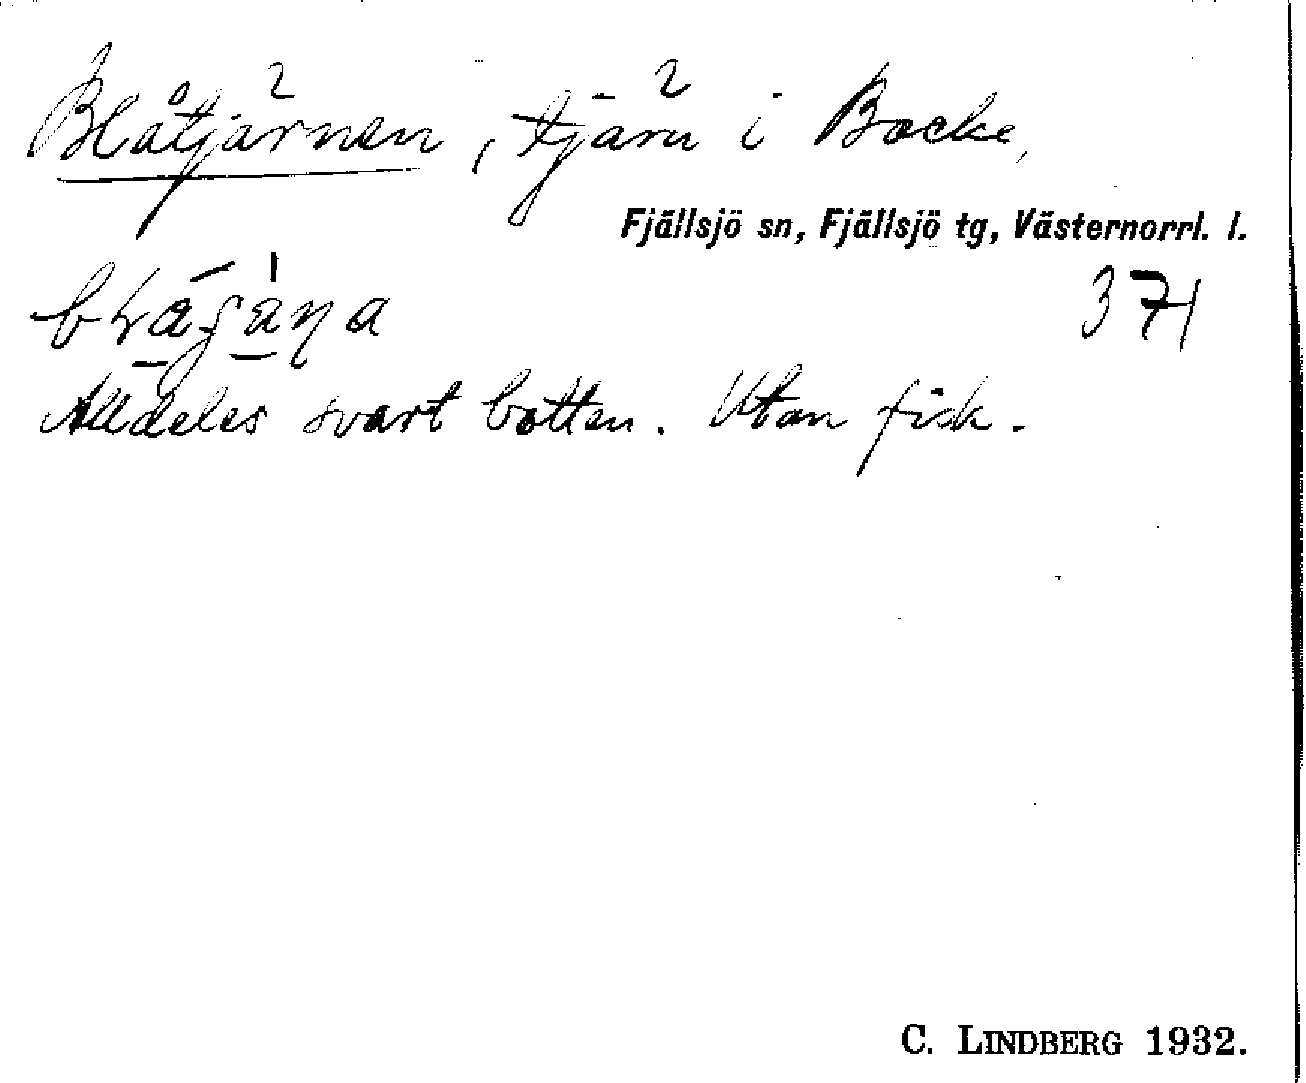 Blåtjärnen, tjärn i Backe,
Fjällsjö sn, Fjällsjö tg, Västernorrl. l.
371
Alldeles svart botten. Utan fisk.
C. LINDBERG 1932.